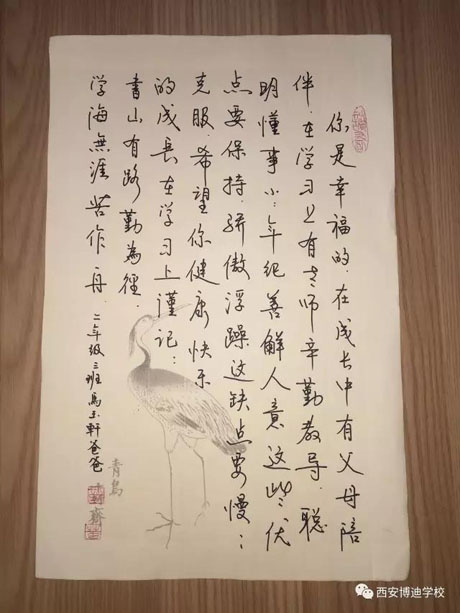 你是幸福的.在成长中有父母陪
伴.在学习上有老师辛勤教导.聪
明懂事小:年纪善解人意这些优
点要保持.骄傲浮躁这缺点要慢:
克服.希望你健康快乐
的成长在学习上谨记:
書山有路勤為徑.
学海無涯苦作舟.
二年级三班馬玉軒爸爸
青鸟
西安博迪学校